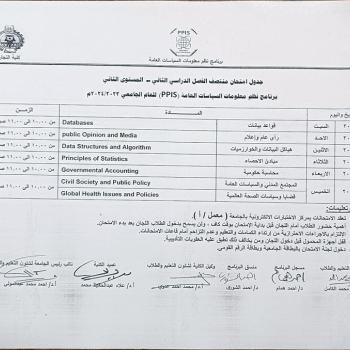 PPIS
برنامج نظم معلومات السياسات العامة
كلية التجارة
جدول امتحان منتصف الفصل الدراسي الثاني – المستوى الثاني
برنامج نظم معلومات السياسات العامة (PPIS) للعام الجامعي ٢٠٢٣/٢٠٢٤م
واليوم المـــــادة الزمـــن
السبت قواعد بيانات Databases من ١٠.٠٠ الى ١١.٠٠
الاحد رأى عام وإعلام public Opinion and Media من ١٠.٠٠ الى ١١.٠٠
الاثنين هياكل البيانات والخوارزميات Data Structures and Algorithm من ١٠.٠٠ الى ١١.٠٠
الثلاثاء مبادئ الاحصاء Principles of Statistics من ١٠.٠٠ الى ١١.٠٠
الاربعاء محاسبة حكومية Governmental Accounting من ١٠.٠٠ الى ١١.٠٠
الخميس المجتمع المدني والسياسات العامة Civil Society and Public Policy من ١٠.٠٠ الى ١١.٠٠
قضايا وسياسات الصحة العالمية Global Health Issues and Policies
تعليمات:
تعقد الامتحانات بمركز الاختبارات الالكترونية بالجامعة ( معمل / أ ).
أهمية حضور الطلاب أمام اللجان قبل بداية الامتحان بوقت كاف ، ولن يسمح بدخول الطلاب اللجان بعد بدء الامتحان.
الالتزام بالاجراءات الاحترازية من ارتداء الكمامات والتعقيم وعدم التزاحم أمام قاعات الامتحانات.
قفل أجهزة المحمول قبل دخول اللجان ومن يخالف ذلك تطبق عليه العقوبات التأديبية.
دخول لجنة الامتحان بالبطاقة الجامعية وبطاقة الرقم القومي.
مسجل البرنامج
منسق البرنامج
وكيل الكلية لشئون التعليم والطلاب
عميد الكلية
نائب رئيس الجامعة لشئون التعليم والطلاب